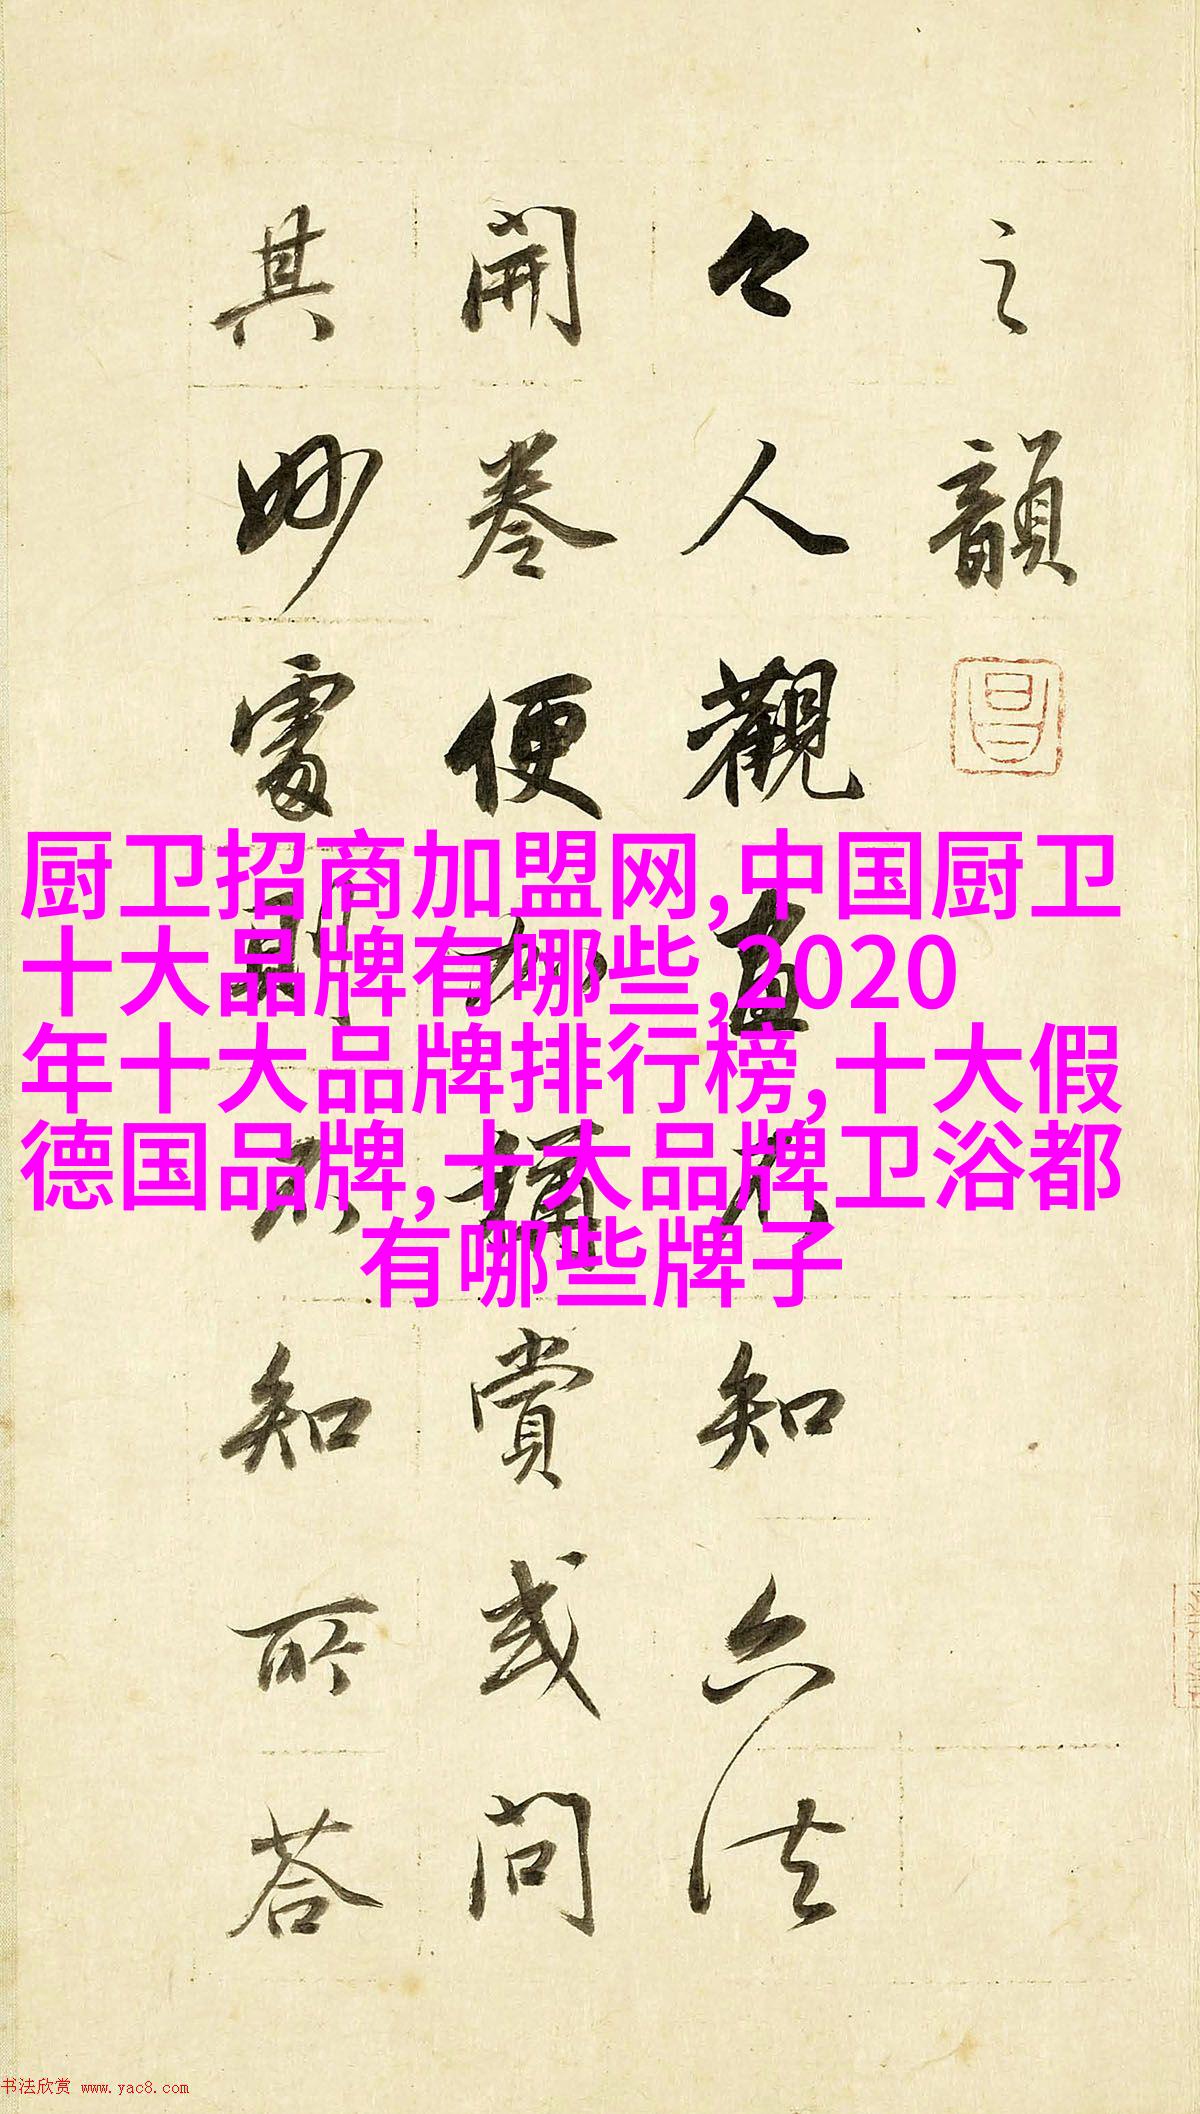 之韻
今人觀畫不知六法
開卷便加稱賞或問
其妙處則不知所答
厨卫招商加盟网,中国厨卫
十大品牌有哪些,2020
年十大品牌排行榜,十大假
德国品牌,十大品牌卫浴都
有哪些牌子
书法欣赏 www.yac8.com